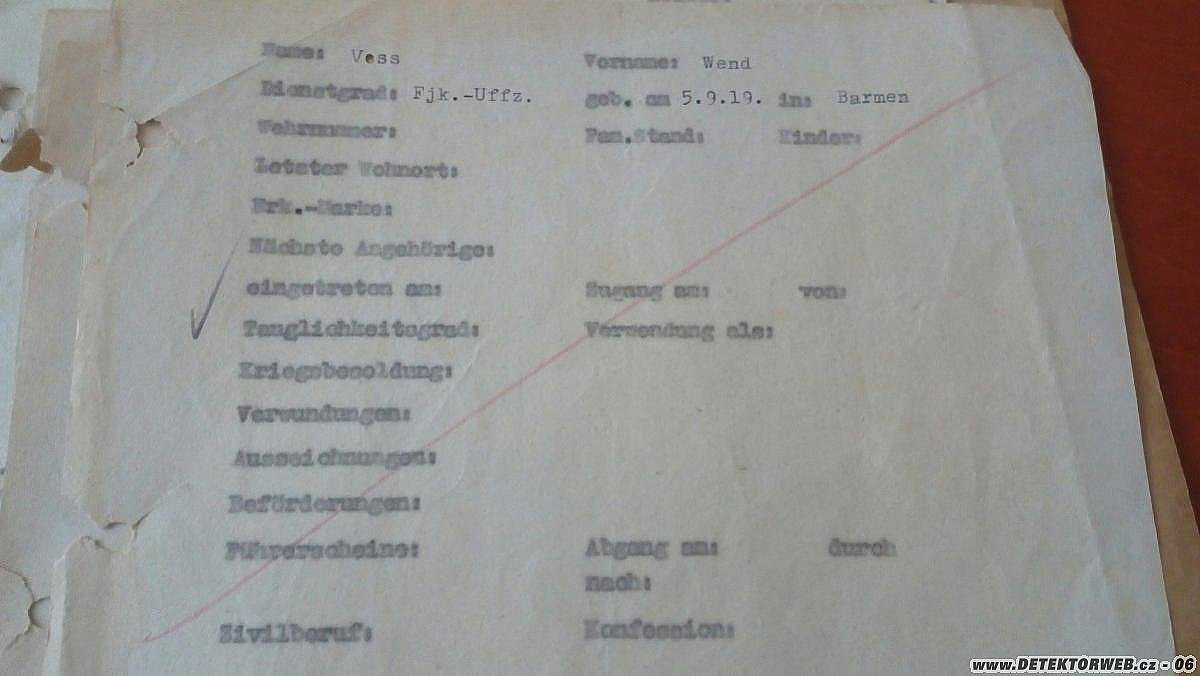 Name: Voss Vorname: Wend
Dienstgrad: Fjk.-Uffz. geb. am 5.9.19. in: Barmen
Wehrnummer: Fam.Stand: Kinder:
Letzter Wohnort:
Erk.-Marke:
Nächste Angehörige:
eingetreten am: Zugang am: von:
Tauglichkeitsgrad: Verwendung als:
Kriegsbesoldung:
Verwundungen:
Auszeichnungen:
Beförderungen:
Führerscheine: Abgang am: durch
nach:
Zivilberuf: Konfession:
www.DETEKTORWEB.cz - 06